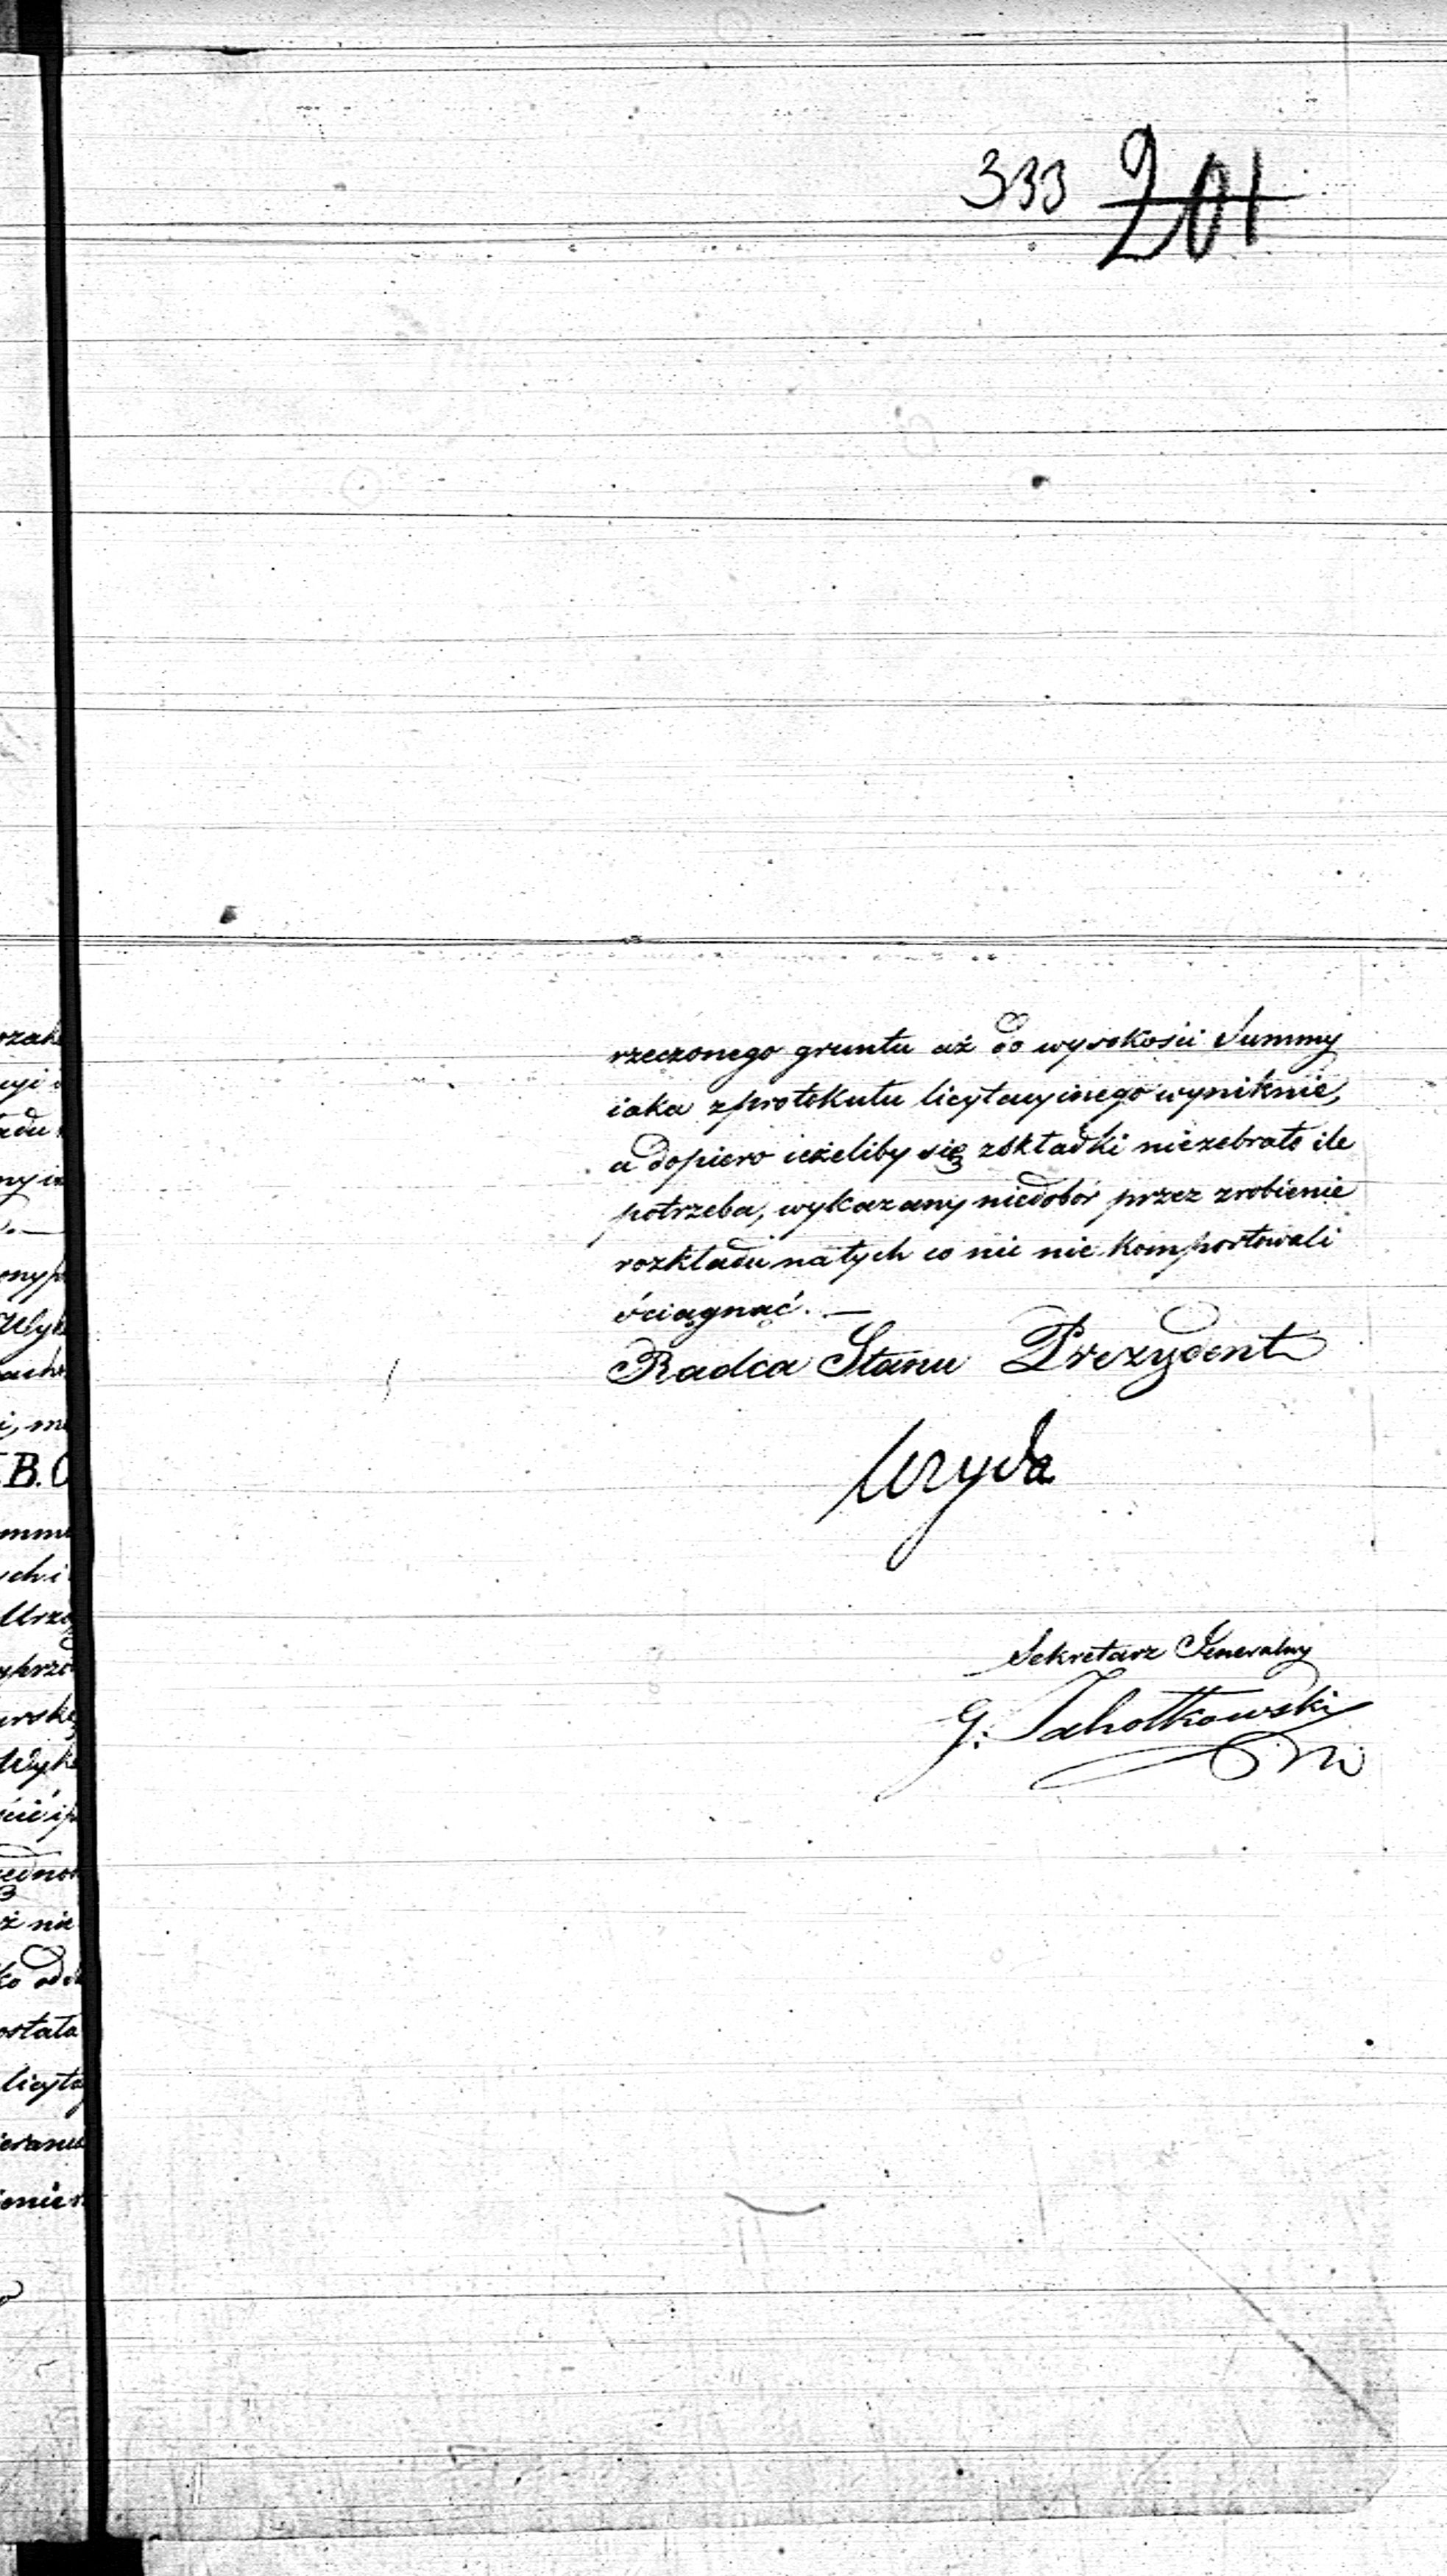 333 201
rzeczonego gruntu aż do wysokości Summy
iaka z protokułu licytacyinego wyniknie,
a dopiero ieżeliby się z składki niezebrało ile
potrzeba, wykazany niedobór przez zrobienie
rozkładu na tych co nic nie komportowali
ściągnąć. —
Radca Stanu Prezydent
Sekretarz Jeneralny
G.